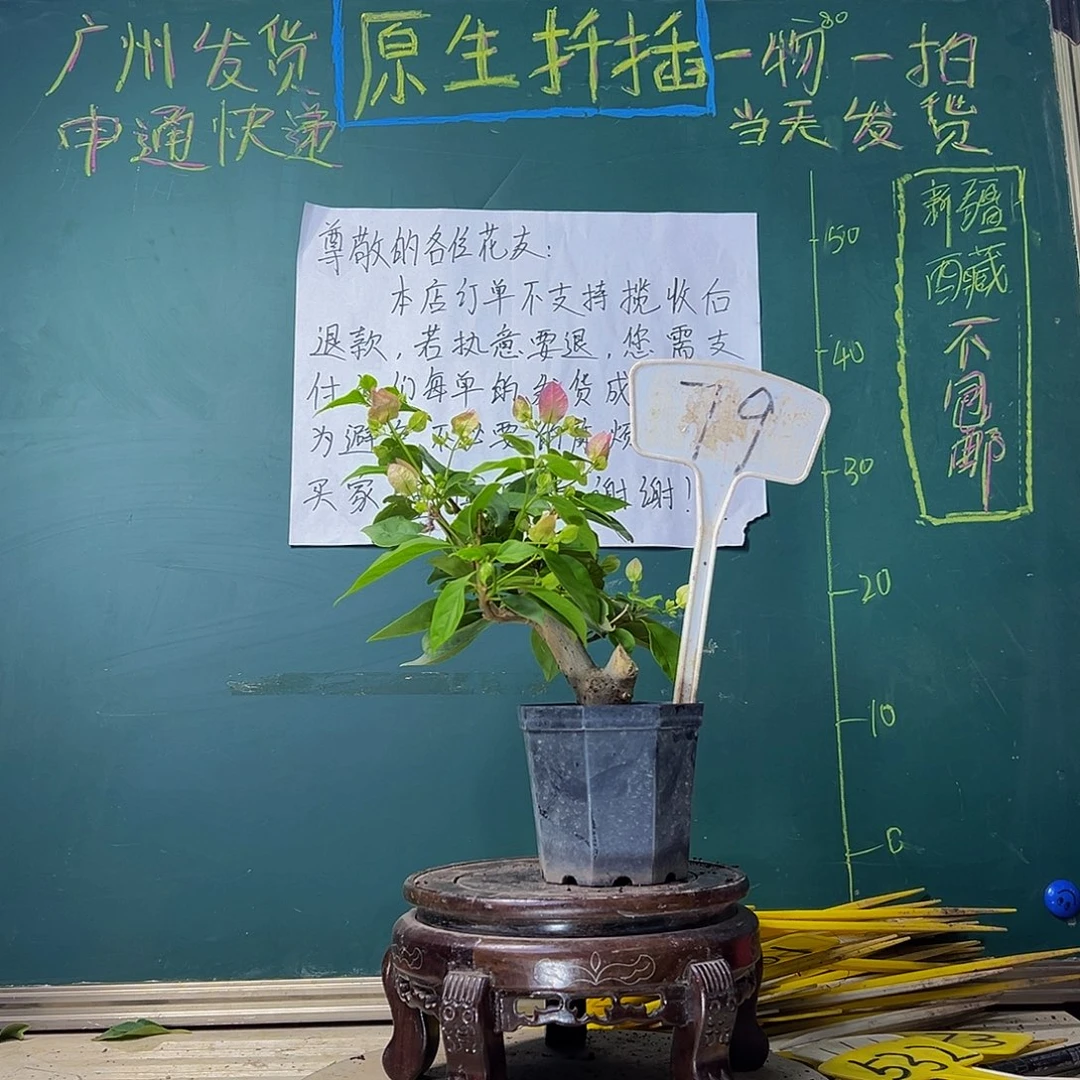 广州发货
原生扦插
一物一拍
申通快递
当天发货
80
新疆
西藏
不
包
邮
尊敬的各位花友:
本店订单不支持揽收后
退款,若执意要退,您需支
付 们每单的发货成
为避 不必要的麻烦
买家 谢谢!
79
50
40
30
20
10
0